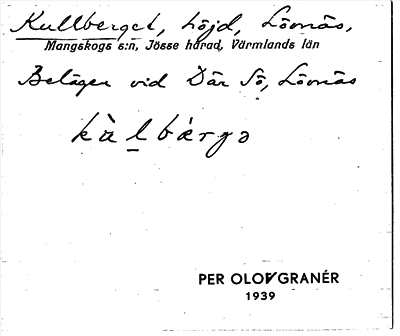 Kullberget, höjd, Lövnäs,
Mangskogs s:n, Jösse härad, Värmlands län
Belägen vid Där Sö, Lövnäs
kàlbærgə
PER OLOF GRANÉR
1939